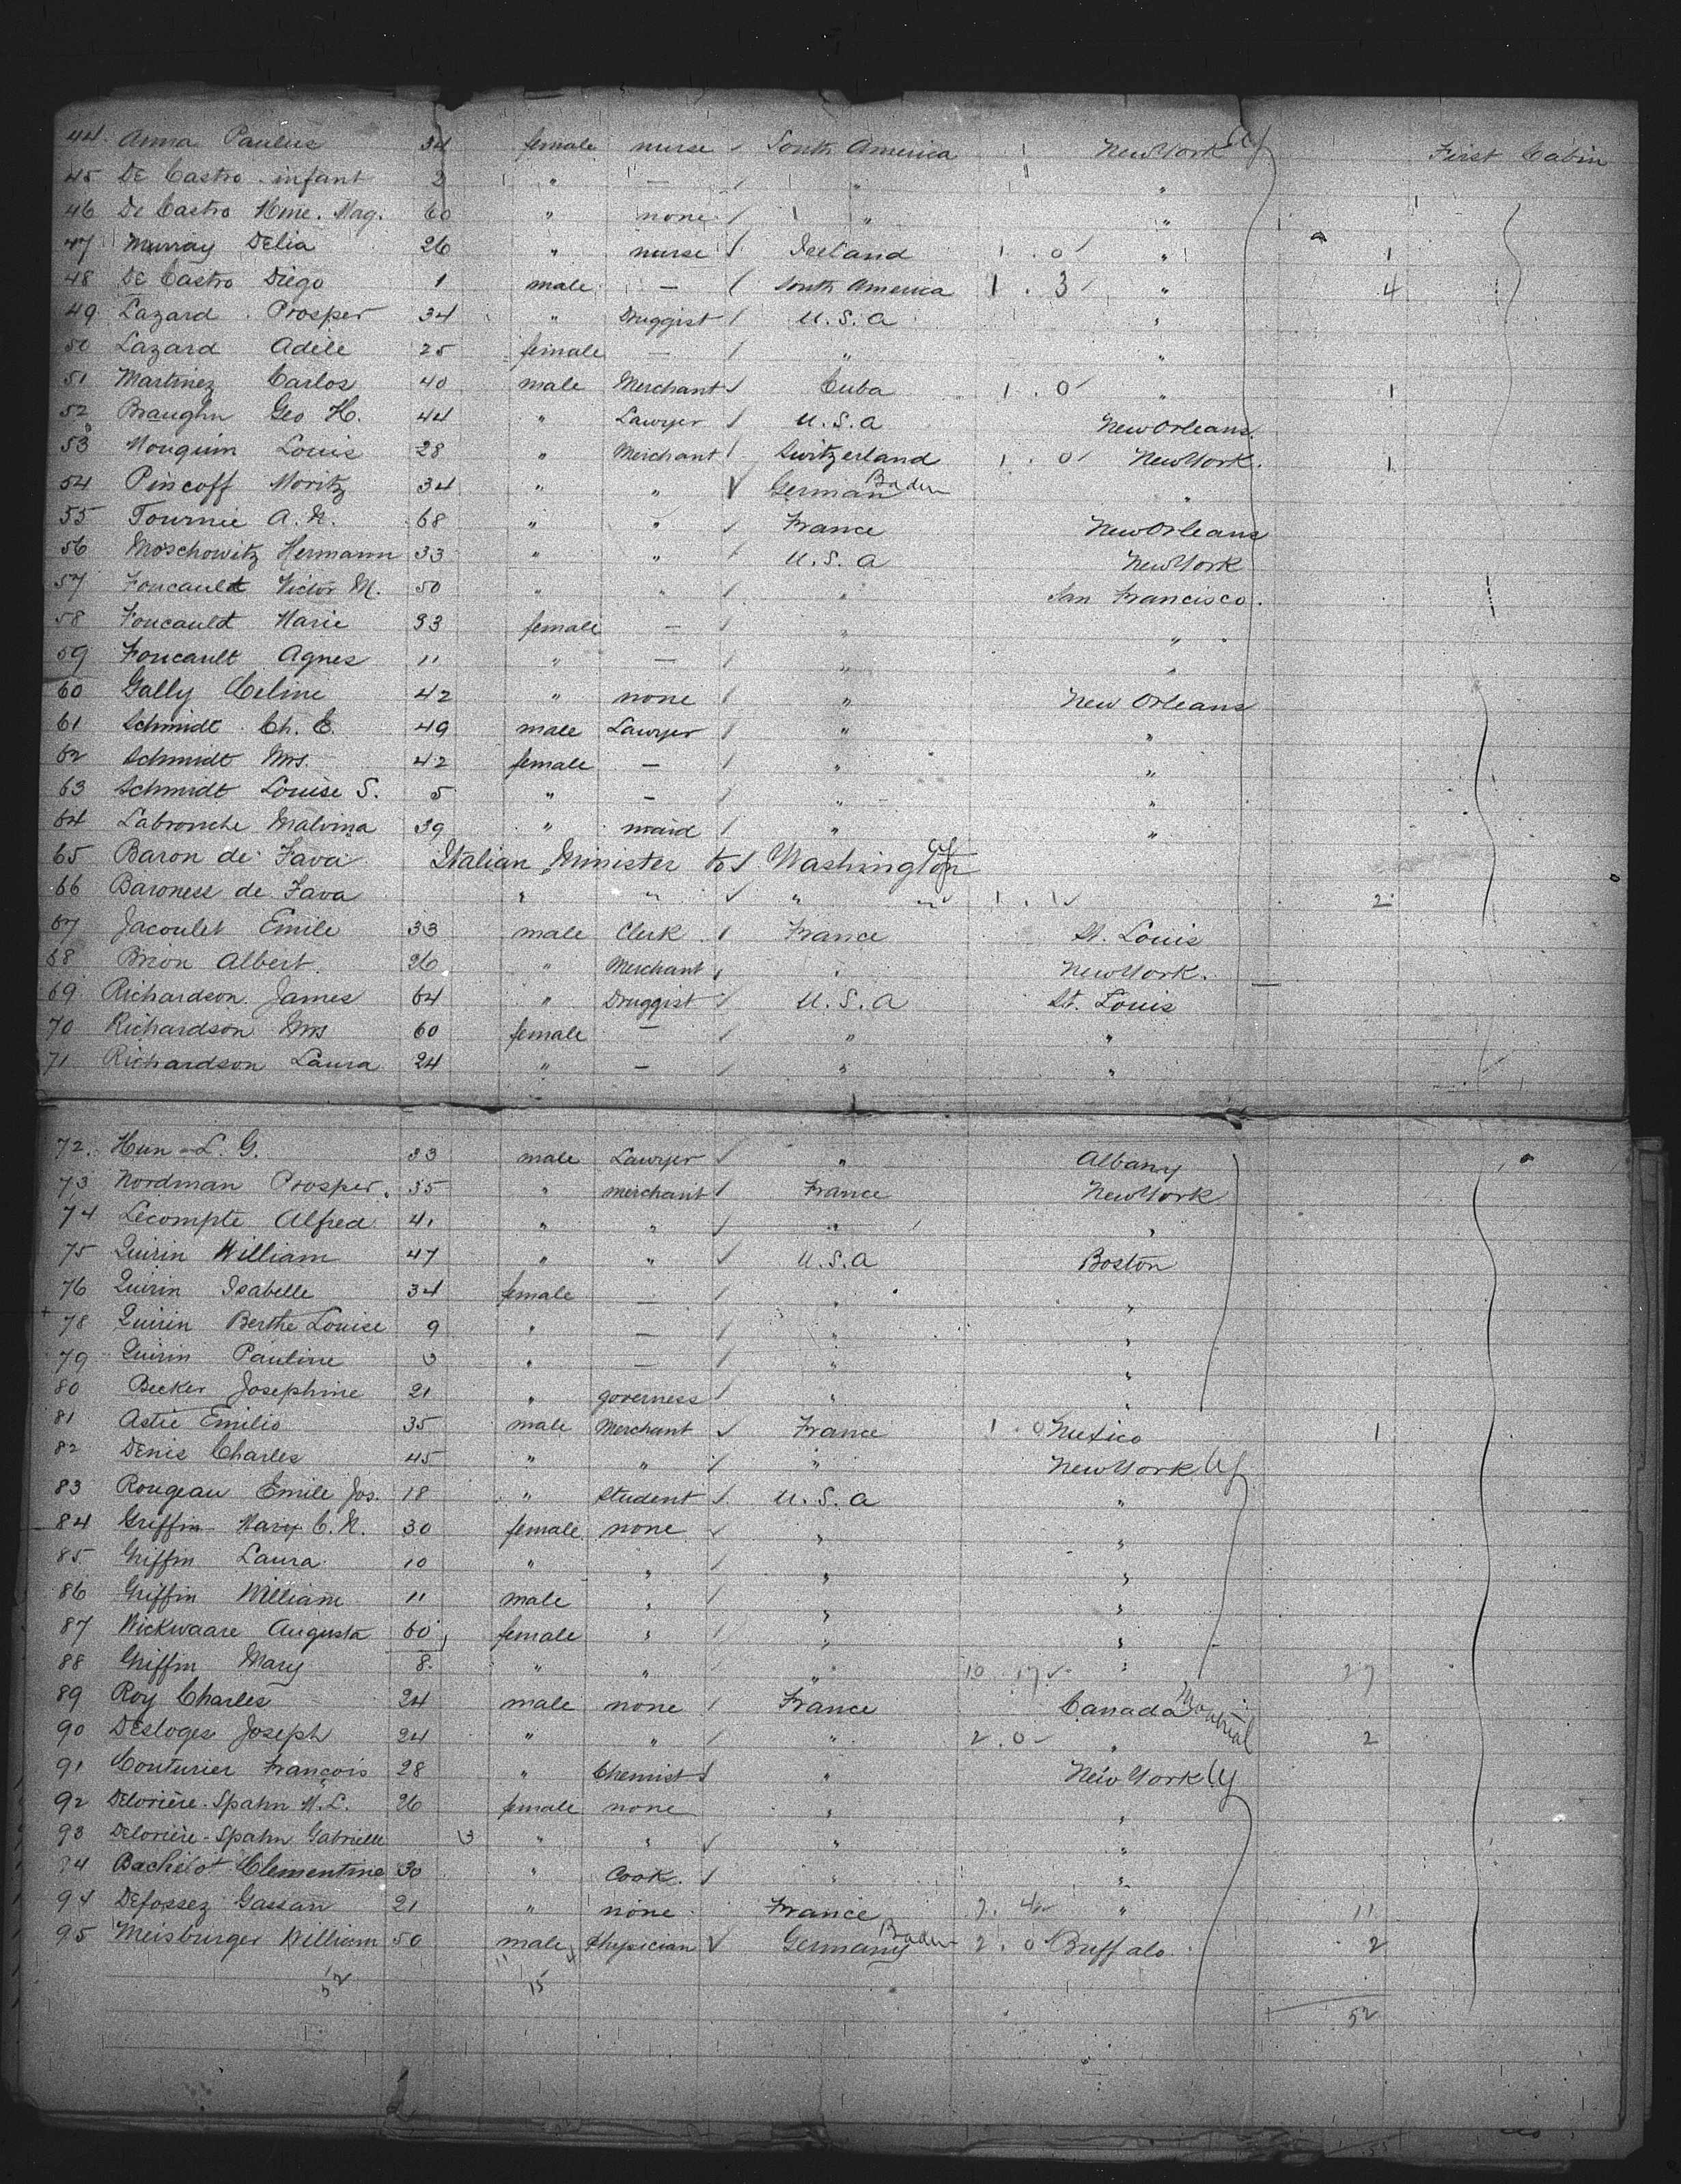 44. Anna Paulus 34 female nurse / South America New York Cy First Cabin
45 De Castro infant 2 " — / " "
46 De Castro Mme. Mag. 60 " none / " "
47 Murray Delia 26 " nurse / Ireland 1 . 0 / " 1
48 De Castro Diego 1 male — / South America 1 . 3 / " 4
49 Lazard Prosper 34 " Druggist / U.S.A "
50 Lazard Adèle 25 female — / " "
51 Martinez Carlos 40 male Merchant / Cuba 1 . 0 / " 1
52 Braughn Geo H. 44 " Lawyer / U.S.A New Orleans.
53 Mouquim Louis 28 " Merchant / Switzerland 1 . 0 / New York. 1
54 Pincoff Moritz 34 " " √ German Baden "
55 Tournie A. 68 " " / France New Orleans
56 Moschowitz Hermann 33 " " / U.S.A New York
57 Foucault Victor M. 50 " " / " San Francisco.
58 Foucault Marie 33 female — / " "
59 Foucault Agnes 11 " — / " "
60 Gally Celine 42 " none / " New Orleans
61 Schmidt Ch. E. 49 male Lawyer / " "
62 Schmidt Mrs. 42 female — / " "
63 Schmidt Louise S. 5 " — / " "
64 Labronche Malvina 39 " maid / " "
65 Baron de Fava Italian Minister to / Washington Cy
66 Baroness de Fava " " √ " " 1 . 1 √ 2
67 Jacoulet Emile 33 male Clerk / France St. Louis
68 Brion Albert. 26 " Merchant / " New York.
69 Richardson James 64 " Druggist / U.S.A St. Louis
70 Richardson Mrs 60 female — / " "
71 Richardson Laura 24 " — / " "
72. Hun L. G. 33 male Lawyer / " Albany
73 Nordman Prosper. 35 " merchant / France New York
74 Lecompte Alfred 41 " " / " "
75 Quirin William 47 " " √ U.S.A Boston
76 Quirin Isabelle 34 female — / " "
+ 78 Quirin Berthe Louise 9 " — / " "
79 Quirin Pauline 3 " — / " "
80 Becker Josephine 21 " governess / " "
81 Astié Emilio 35 male Merchant √ France 1 . 0 Mexico 1
82 Denis Charles 45 " " / " New York Cy
83 Rougeau Emile Jos. 18 " Student / U.S.A "
84 Griffin Mary C. 30 female none √ " "
85 Griffin Laura 10 " " / " "
86 Griffin William 11 male " / " "
87 Wickwaare Augusta 60 female " / " "
88 Griffin Mary 8 " " / " 10 . 17 √ " 27
89 Roy Charles 24 male none / France Canada Montreal
90 Desloges Joseph 24 " " / " 2 . 0 " 2
91 Couturier François 28 " Chemist / " New York Cy
92 Delorière-Spahn M. L. 26 female none " "
93 Delorière-Spahn Gabrielle 3 " " √ " "
94 Bachelot Clementine 30 " Cook. / " "
94 Defossez Gassan 21 " none France 7. 4 √ " 11
95 Meisburger William 50 male Physician √ Germany Baden 2 . 0 Buffalo 2
15
52